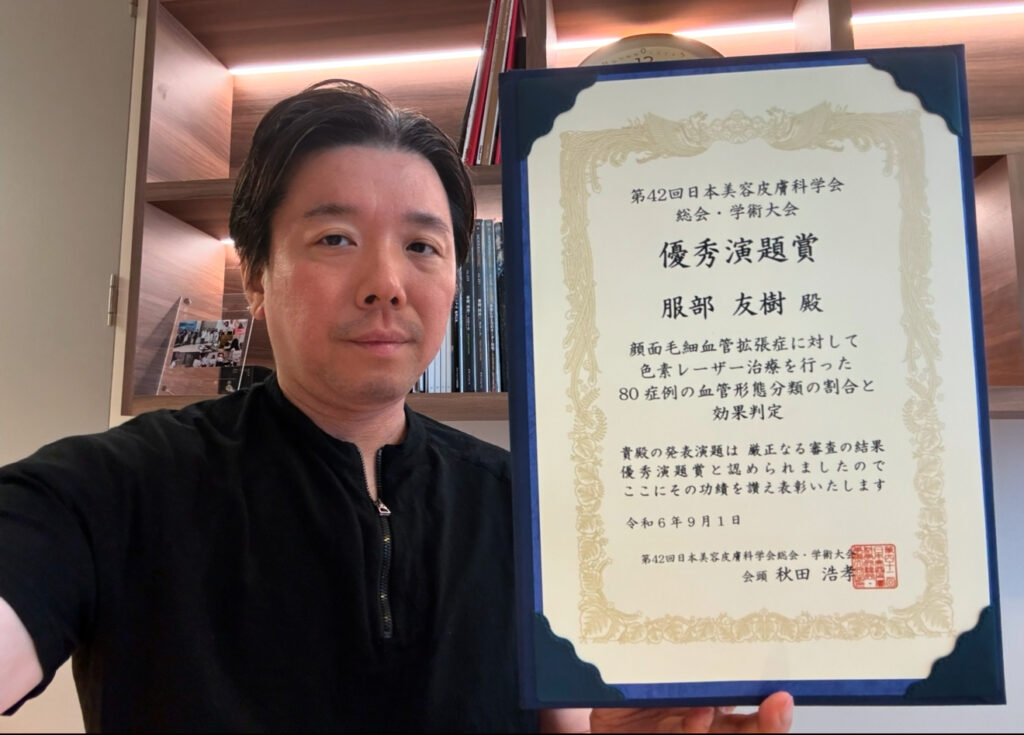 12
第42回日本美容皮膚科学会
総会・学術大会
優秀演題賞
服部 友樹 殿
顔面毛細血管拡張症に対して
色素レーザー治療を行った
80症例の血管形態分類の割合と
効果判定
貴殿の発表演題は 厳正なる審査の結果
優秀演題賞と認められましたので
ここにその功績を讃え表彰いたします
令和6年9月1日
第42回日本美容皮膚科学会総会・学術大会
会頭 秋田 浩孝